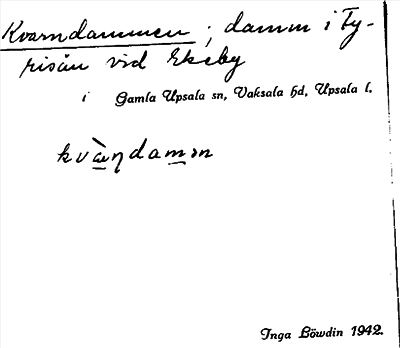 Kvarndammen; damm i Fy-
risån vid Ekeby
i Gamla Upsala sn, Vaksala hd, Upsala l.
kvæ̀ɳdamən
Inga Löwdin 1942.